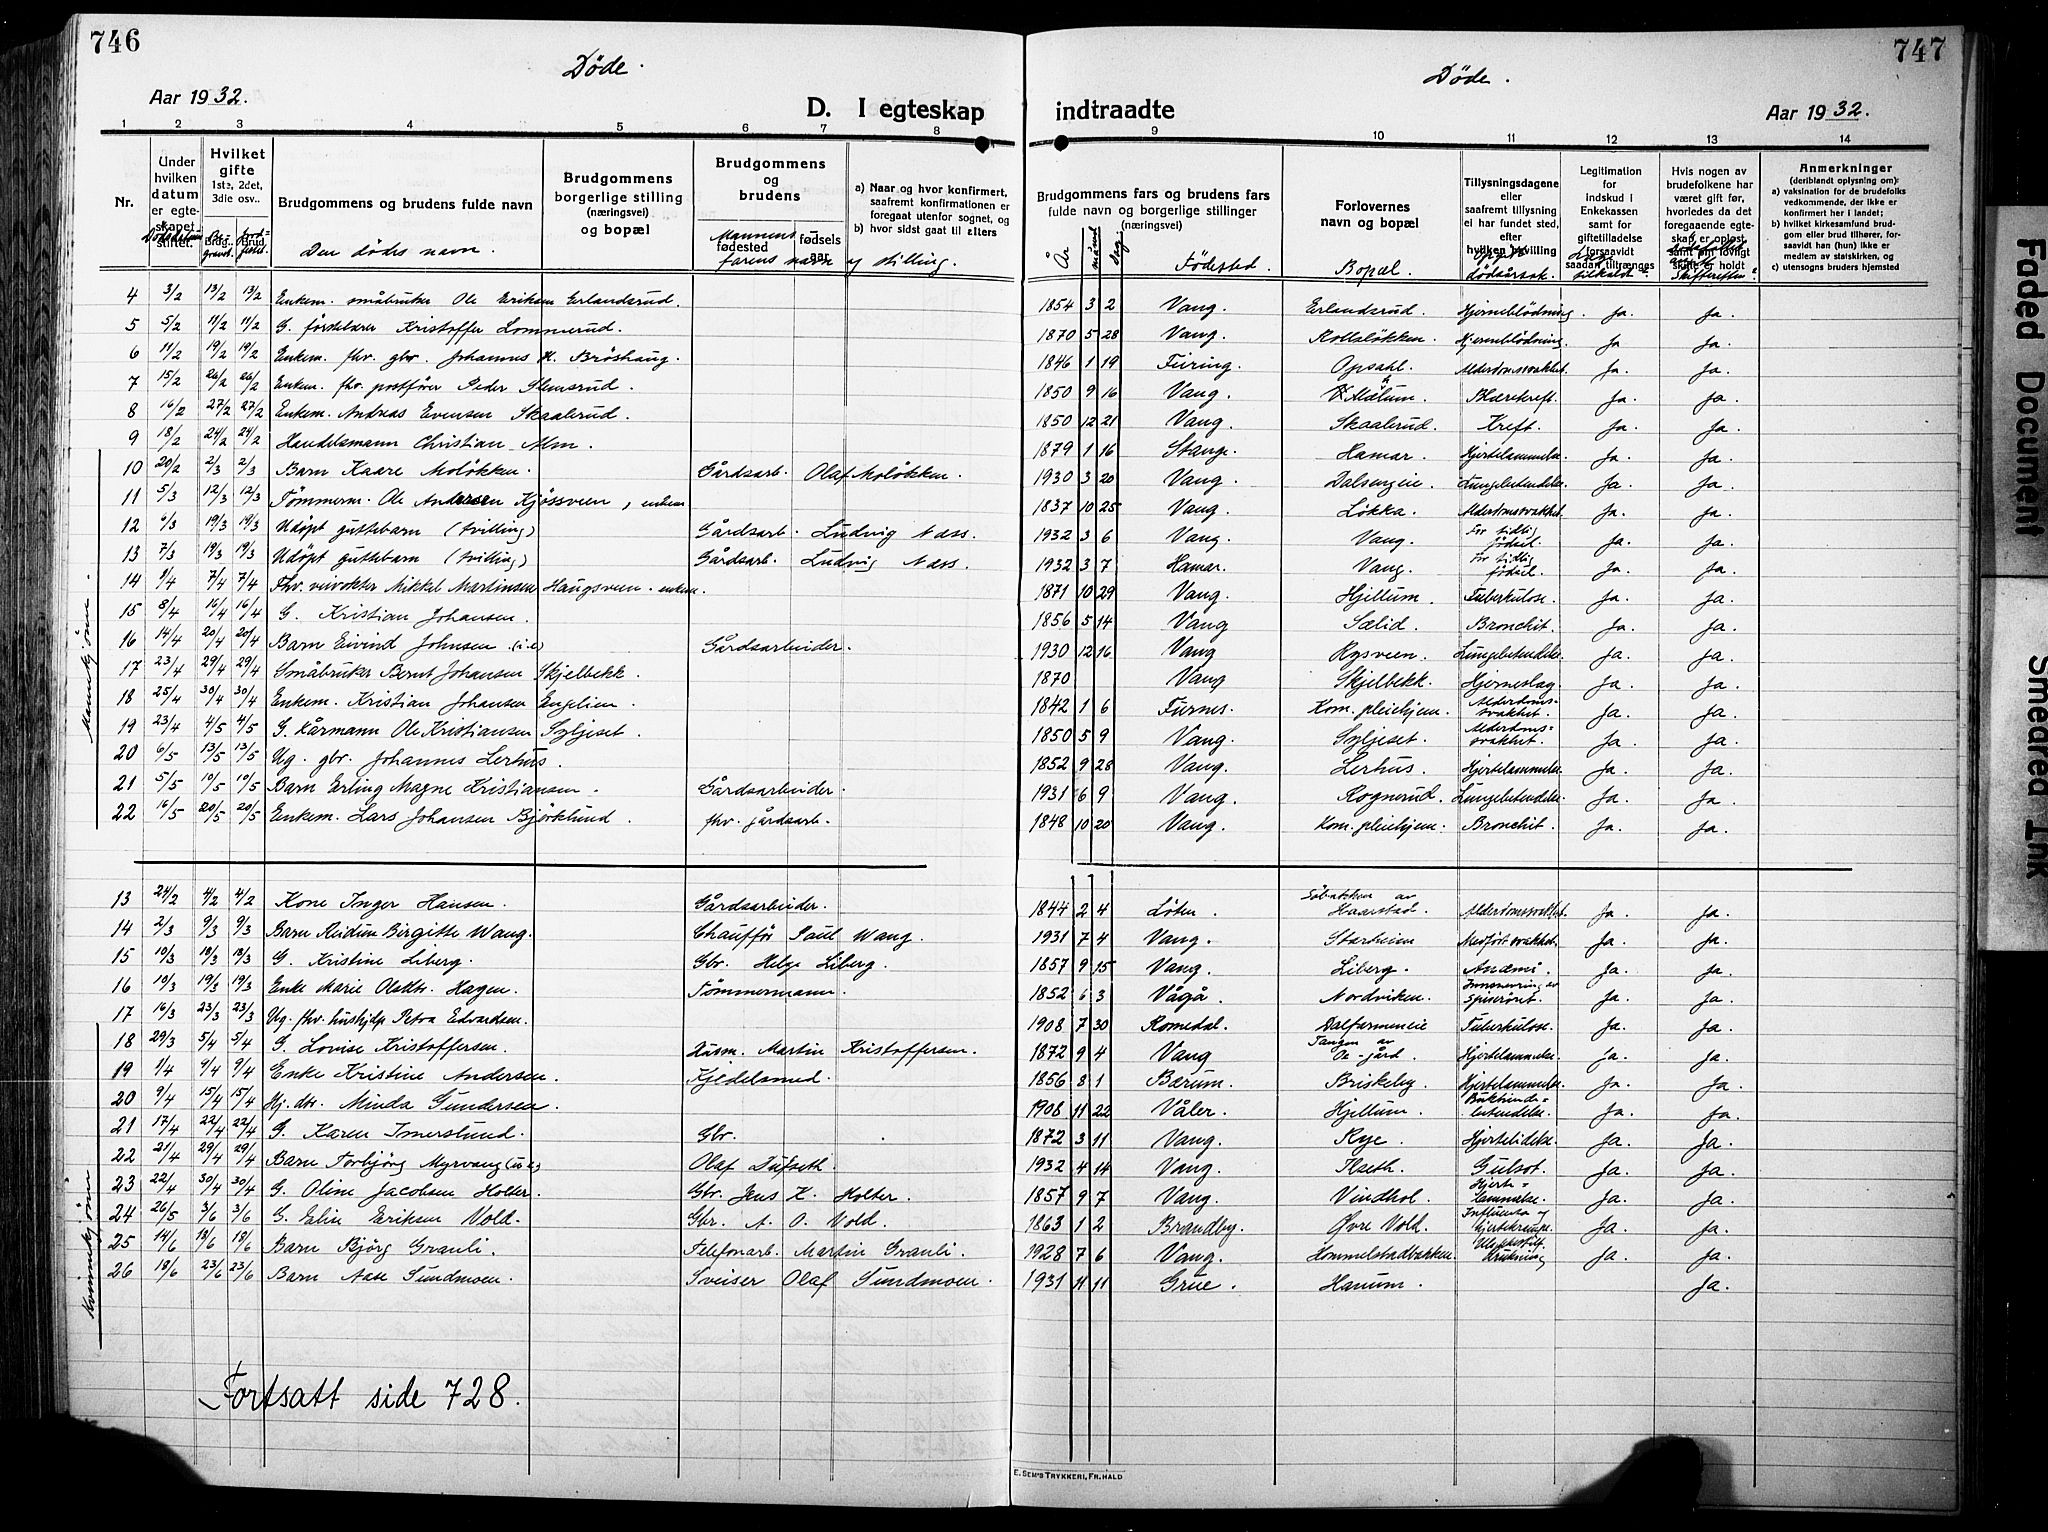 746
Døde.
Aar 1932.
D. I egteskap
1 2 3 4 5 6 7 8
Nr.
Under hvilken datum er egteskapet stiftet.
Hvilket gifte 1ste, 2det, 3die osv..
Brudg. Brud
Brudgommens og brudens fulde navn
Brudgommens borgerlige stilling (næringsvei) og bopæl
Brudgommens og brudens
fødested
fødselsaar
a) Naar og hvor konfirmert, saafremt konfirmationen er foregaat utenfor sognet, og
b) hvor sidst gaat til alters
Dødsdatum
Den dødes navn.
Mannens, farens navn og stilling.
4 3/2 13/2 13/2 Enkem. småbruker Ole Eriksen Erlandsrud.
5 5/2 11/2 11/2 G. førstelærer Kristoffer Lommerud.
6 11/2 19/2 19/2 Enkem. fhv. gbr. Johannes H. Brøshaug.
7 15/2 26/2 26/2 Enkem. fhv. postfører Peder Slemsrud.
8 16/2 27/2 27/2 Enkem. Andreas Evensen Skaalerud.
9 18/2 24/2 24/2 Handelsmann Christian Alm.
10 20/2 2/3 2/3 Barn Kaare Moløkken. Gårdsarb. Olaf Moløkken.
11 5/3 12/3 12/3 Tømmerm. Ole Andersen Kjøssveen, enkem
12 6/3 19/3 19/3 Udøpt guttebarn (tvilling) Gårdsarb. Ludvig Næss.
13 7/3 19/3 19/3 Udøpt guttebarn (tvilling) Gårdsarb. Ludvig Næss.
14 1/4 7/4 7/4 Fhv. veivokter Mikkel Martinsen Haugsveen. enkem.
15 8/4 16/4 16/4 G. Kristian Johansen.
16 14/4 20/4 20/4 Barn Eivind Johnsen (u.e) Gårdsarbeider.
17 23/4 29/4 29/4 Småbruker Bernt Johansen Skjelbekk.
18 25/4 30/4 30/4 Enkem. Kristian Johansen Engelien.
19 23/4 4/5 4/5 G. Kårmann Ole Kristiansen Syljeset.
20 6/5 13/5 13/5 Ug. gbr. Johannes Lerhus.
21 5/5 10/5 10/5 Barn Erling Magne Kristiansen. Gårdsarbeider.
22 16/5 20/5 20/5 Enkem. Lars Johansen Bjørklund. fhv. gårdsarb.
Mannkjønn.
13 24/2 4/2 4/2 Kone Inger Hansen. Gårdsarbeider.
14 2/3 9/3 9/3 Barn Reidun Birgitte Wang. Chauffør Paul Wang.
15 10/3 18/3 18/3 G. Kristine Liberg. Gbr. Helge Liberg.
16 10/3 19/3 19/3 Enke Marie Olsdtr. Hagen. Tømmermann.
17 16/3 23/3 23/3 Ug. fhv. hushjelp Petra Edvardsen.
18 29/3 5/4 5/4 G. Lovise Kristoffersen. Husm. Martin Kristoffersen.
19 1/4 9/4 9/4 Enke Kristine Andersen. Kjedelsmed.
20 9/4 15/4 15/4 Hj. dtr. Minda Gundersen.
21 17/4 22/4 22/4 G. Karen Imerslund. Gbr.
22 21/4 29/4 29/4 Barn Torbjørg Myrvang (u e) Olaf Tufseth.
23 22/4 30/4 30/4 G. Oline Jacobsen Holter. Gbr. Jens K. Holter.
24 26/5 3/6 3/6 G. Elise Eriksen Vold. Gbr. A. O. Vold.
25 14/6 18/6 18/6 Barn Bjørg Granli. Telefonarb. Martin Granli.
26 18/6 23/6 23/6 Barn Aase Sundmoen. Sveiser Olaf Sundmoen.
Kvinnekjønn
Fortsatt side 728.
747
Døde.
indtraadte
Aar 1932.
9 10 11 12 13 14
Brudgommens fars og brudens fars fulde navn og borgerlige stillinger (næringsvei)
Forlovernes navn og bopæl
Tillysningsdagene eller saafremt tillysning ei har fundet sted, efter hvilken bevilling
Legitimation for indskud i Enkekassen samt for giftetilladelse forsaavidt saadan tiltrænges
Hvis nogen av brudefolkene har været gift før, hvorledes da det foregaaende egteskap er opløst samt om lovligt skifte er holdt
Anmerkninger
(deriblandt oplysning om):
a) vaksination for de brudefolks vedkommende, der ikke er konfirmert her i landet;
b) hvilket kirkesamfund brudgom eller brud tilhører, forsaavidt han (hun) ikke er medlem av statskirken, og
c) utensogns bruders hjemsted
År måned dag Fødested. Bopæl. dødsårsak.
1854 3 2 Vang. Erlandsrud. Hjerneblødning. Ja. Ja.
1870 5 28 Vang. Rollsløkken. Hjerneblødning. Ja Ja.
1846 1 19 Furnes. Opsahl. Alderdomssvakhet. Ja. Ja.
1850 9 16 Vang. Mælum. Blærekreft. Ja. Ja.
1850 12 21 Vang. Skaalerud. Kreft. Ja. Ja.
1879 1 16 Stange. Hamar. Hjertelammelse. Ja. Ja.
1930 3 20 Vang. Dalsengeie. Lungebetendelse. Ja. Ja.
1837 10 25 Vang. Løkka. Alderdomssvakhet. Ja. Ja.
1932 3 6 Vang. Vang. For tidlig fødsel. Ja. Ja.
1932 3 7 Hamar. Vang. For tidlig fødsel. Ja. Ja.
1871 10 29 Vang. Hjellum. Tuberkulose. Ja. Ja.
1856 5 14 Vang Sælid. Bronchit. Ja. Ja.
1930 12 16 Vang Rysveen. Lungebetendelse. Ja. Ja.
1870 Vang Skjelbekk. Hjerneslag. Ja. Ja.
1842 1 6 Furnes. Kom. pleiehjem. Alderdomssvakhet. Ja. Ja.
1850 5 9 Vang. Syljeset. Alderdomssvakhet. Ja. Ja.
1852 9 28 Vang. Lerhus. Hjertelammelse. Ja. Ja.
1931 6 9 Vang. Rognerud. Lungebetendelse. Ja. Ja.
1848 10 20 Vang. Kom. pleiehjem. Bronchit. Ja. Ja.
1844 2 4 Løten. Haarstad. Alderdomssvakhet. Ja. Ja.
1931 7 4 Vang. Starheim Medfødt svakhet. Ja. Ja.
1857 9 15 Vang. Liberg. Anæmi. Ja. Ja.
1852 6 3 Vågå. Nordviken. Innsnevring av spiserøret. Ja. Ja.
1908 7 30 Romedal. Dalfarmeneie Tuberkulose. Ja. Ja.
1872 9 4 Vang Tangen av Oe-gård. Hjertelammelse. Ja. Ja.
1856 8 1 Bærum. Briskeby. Hjertelammelse. Ja. Ja.
1908 11 22 Våler. Hjellum. Bukhindebetendelse. Ja. Ja.
1872 3 11 Vang. Rye. Hjertelidelse. Ja. Ja.
1932 4 14 Vang. Ilseth. Gulsot. Ja. Ja.
1857 9 7 Vang. Vindhol. Hjertelammelse. Ja. Ja.
1863 1 2 Brandby. Øvre Vold. Influensa og hjertekrampe. Ja. Ja.
1928 7 6 Vang. Hommelstadbakken. Ulykkestilf. drukning Ja. Ja.
1931 11 11 Grue. Hanum. Ja.
E. SEM'S TRYKKERI, FR.HALD
Faded Document
Smeared Ink